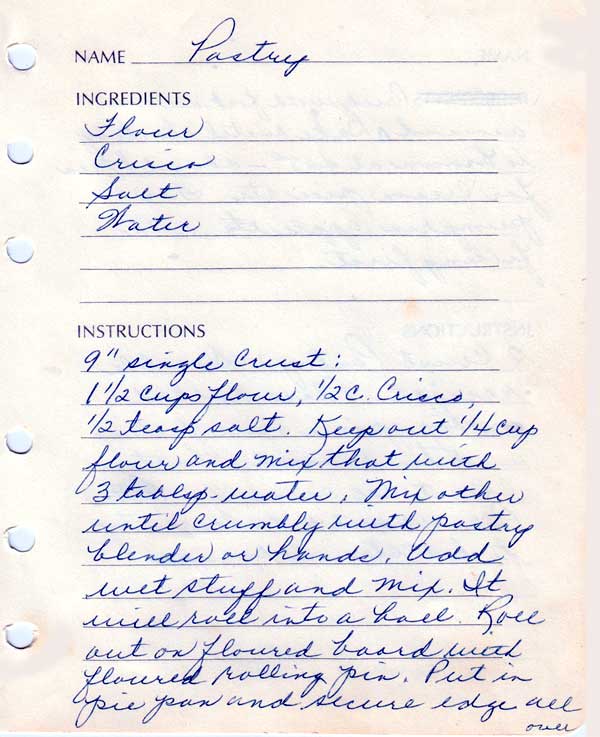 NAME Pastry
INGREDIENTS
Flour
Crisco
Salt
Water
INSTRUCTIONS
9" single Crust:
1 1/2 cups flour, 1/2 c. Crisco,
1/2 teasp salt. Keep out 1/4 cup
flour and mix that with
3 tablsp. water. Mix other
until crumbly with pastry
blender or hands. Add
wet stuff and mix. It
will roll into a ball. Roll
out on floured board with
floured rolling pin. Put in
pie pan and secure edge all
over